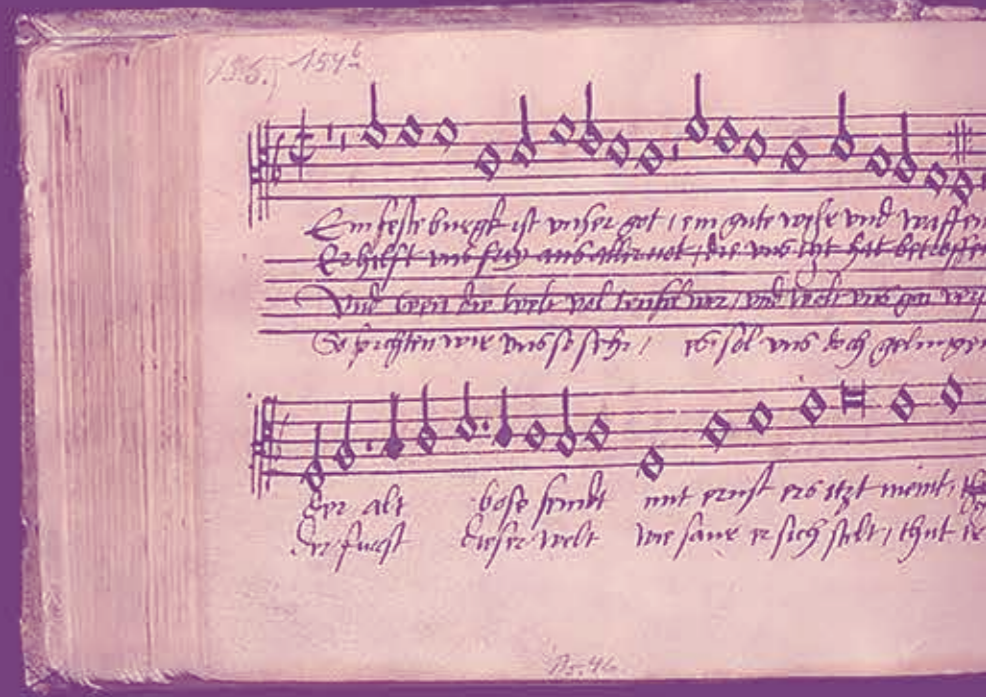 135. 154b
Ein feste burgk ist unser got, ein gute wehr vnd waffen
Er hilfft vns frey aus aller not, die vns itzt hat betroffen
Vnd wen die welt vol teufel wer, vnd wolt vns gar
So furchten wir vns so sehr, es sol vns doch gelingen
der alt bose feindt mit ernst ers itzt meint,
der furst dieser welt wie saur er sich stelt, thut